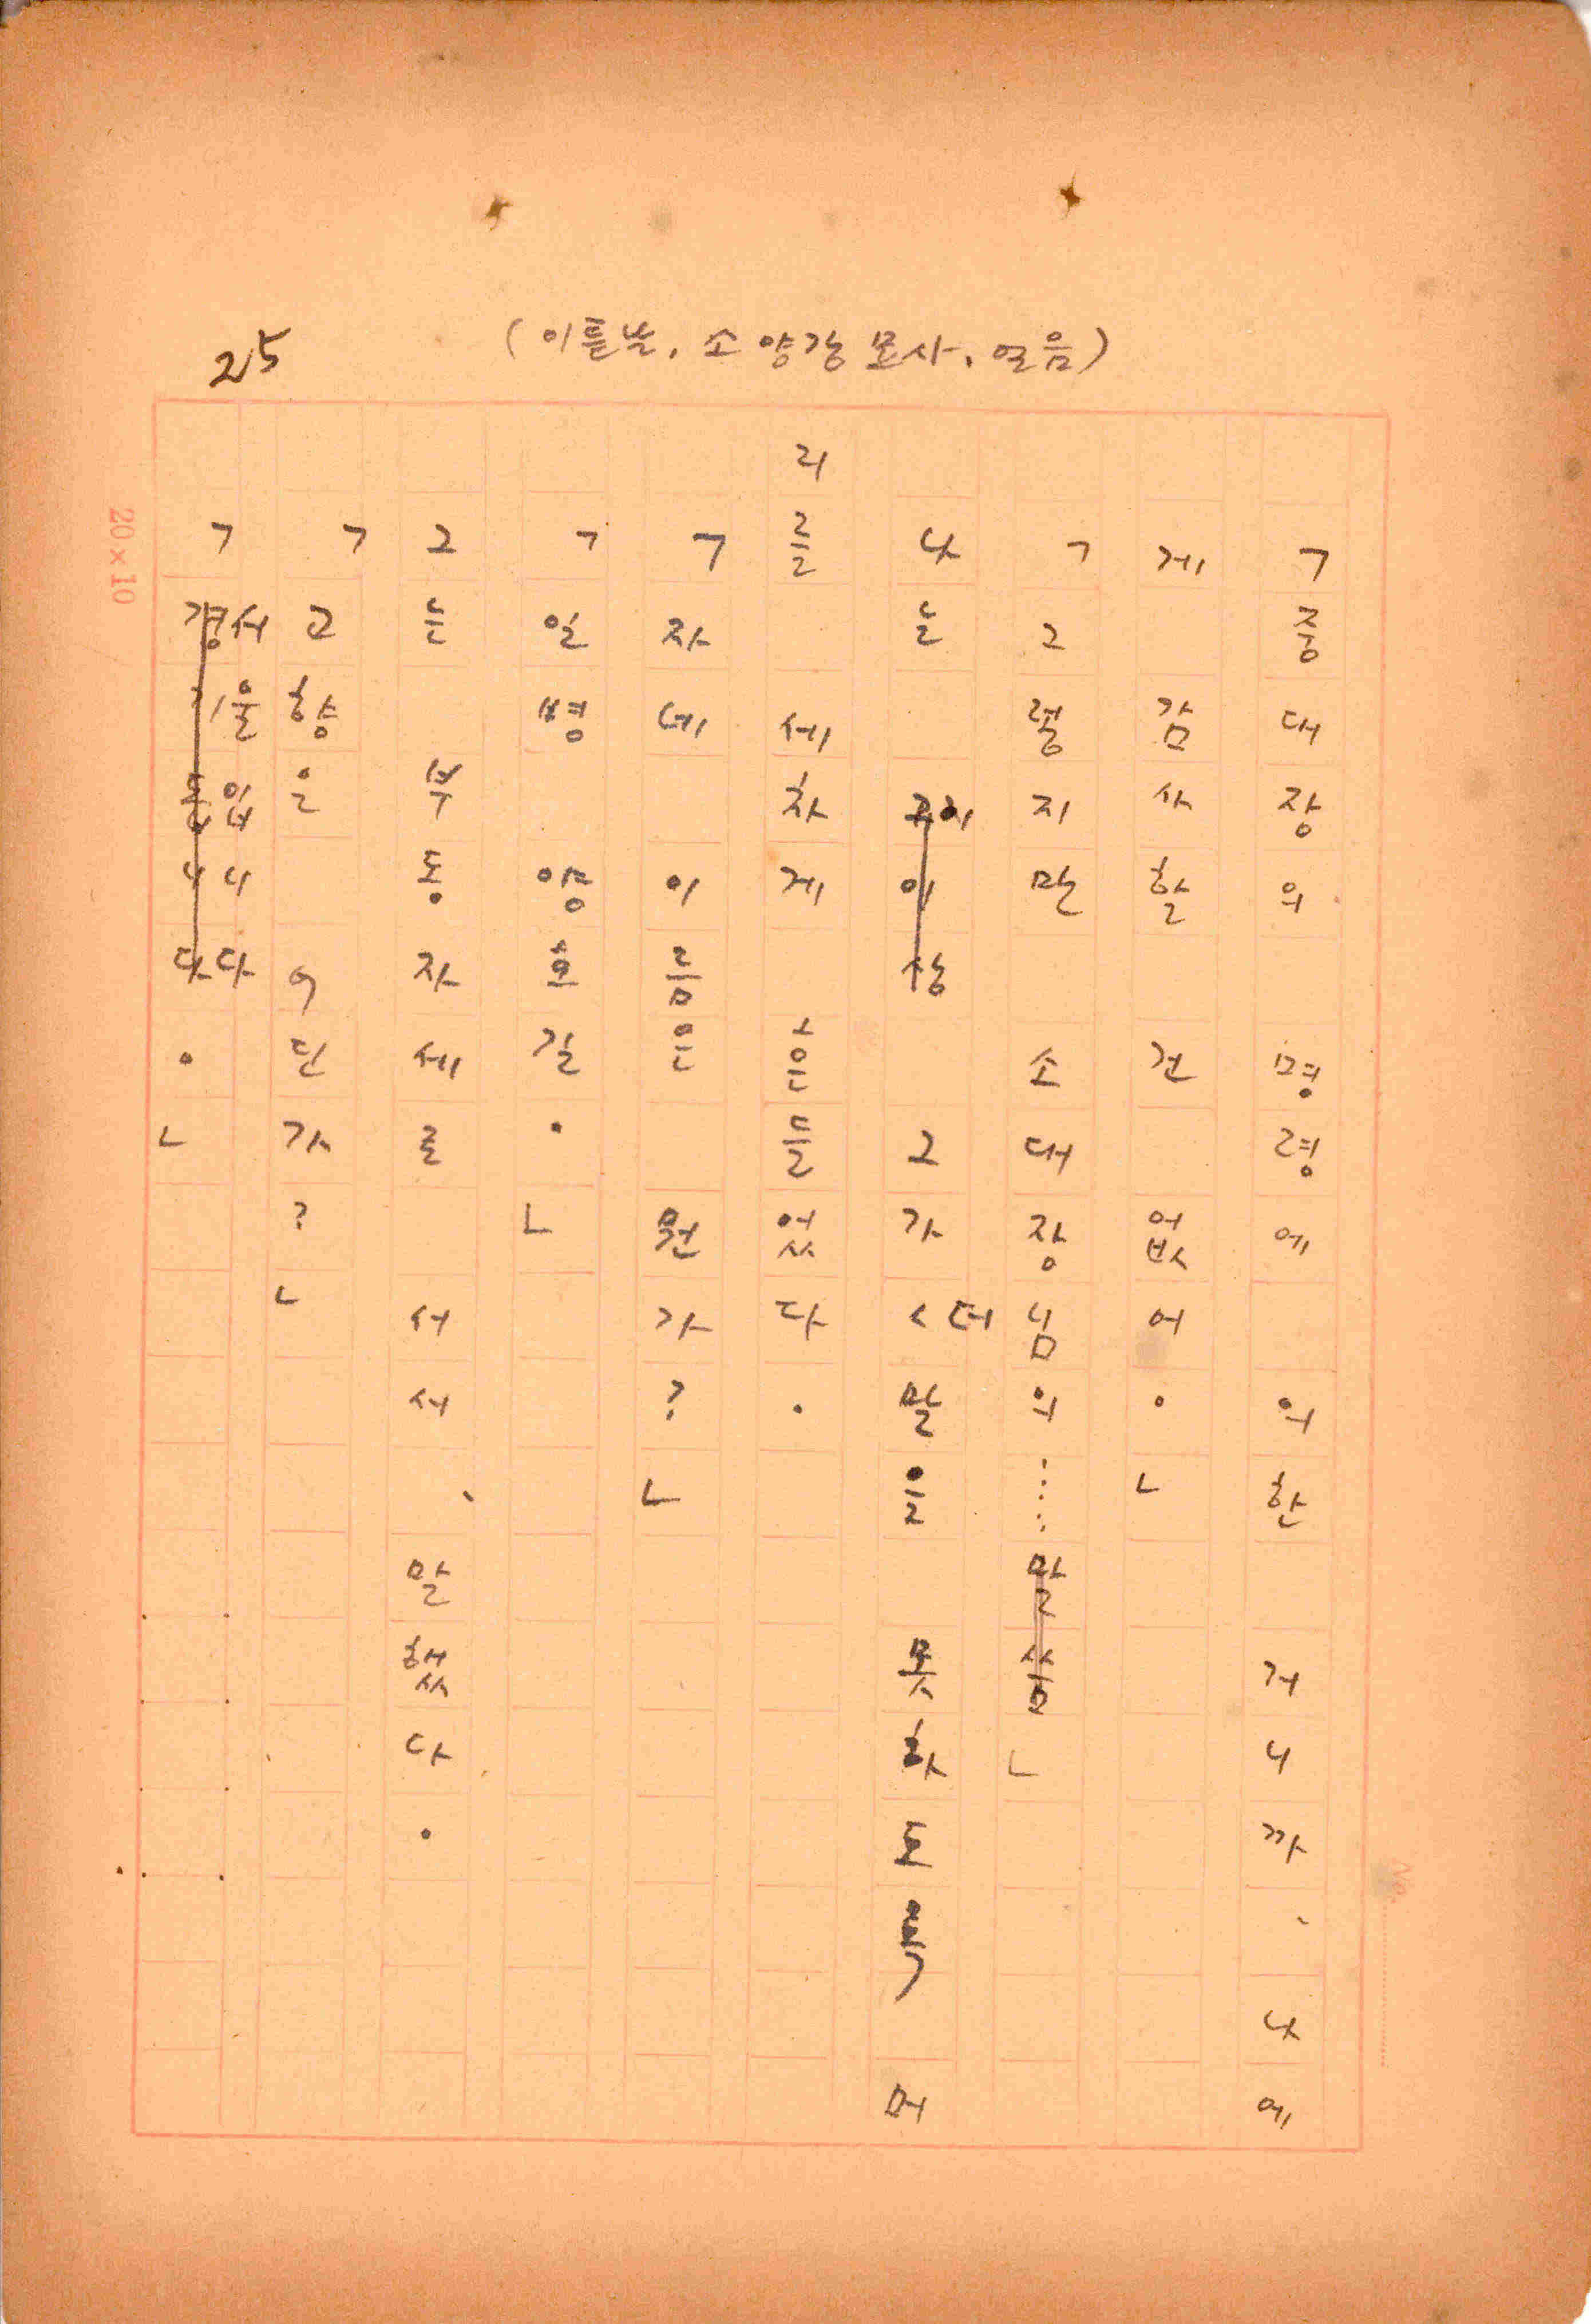 25
(이튿날, 소양강 묘사, 얼음)
「중대장의 명령에 의한 거니까、 나에
게 감사할 건 없어.」
「그렇지만 소대장님의……말씀」
나는 그가 더 말을 못하도록 머
리를 세차게 흔들었다.
「자네 이름은 뭔가?」
「일병 양효길.」
그는 부동자세로 서서、 말했다.
「고향은 어딘가?」
「서울입니다.」
20×10
No.